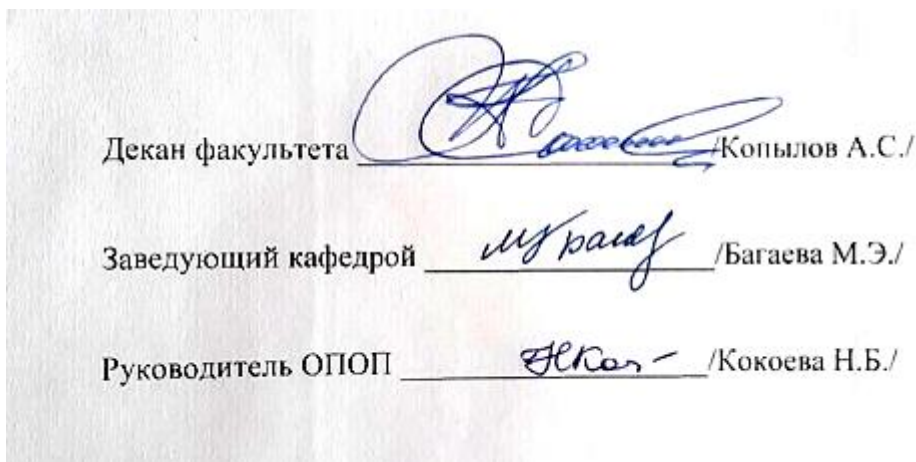 Декан факультета /Копылов А.С./
Заведующий кафедрой /Багаева М.Э./
Руководитель ОПОП /Кокоева Н.Б./